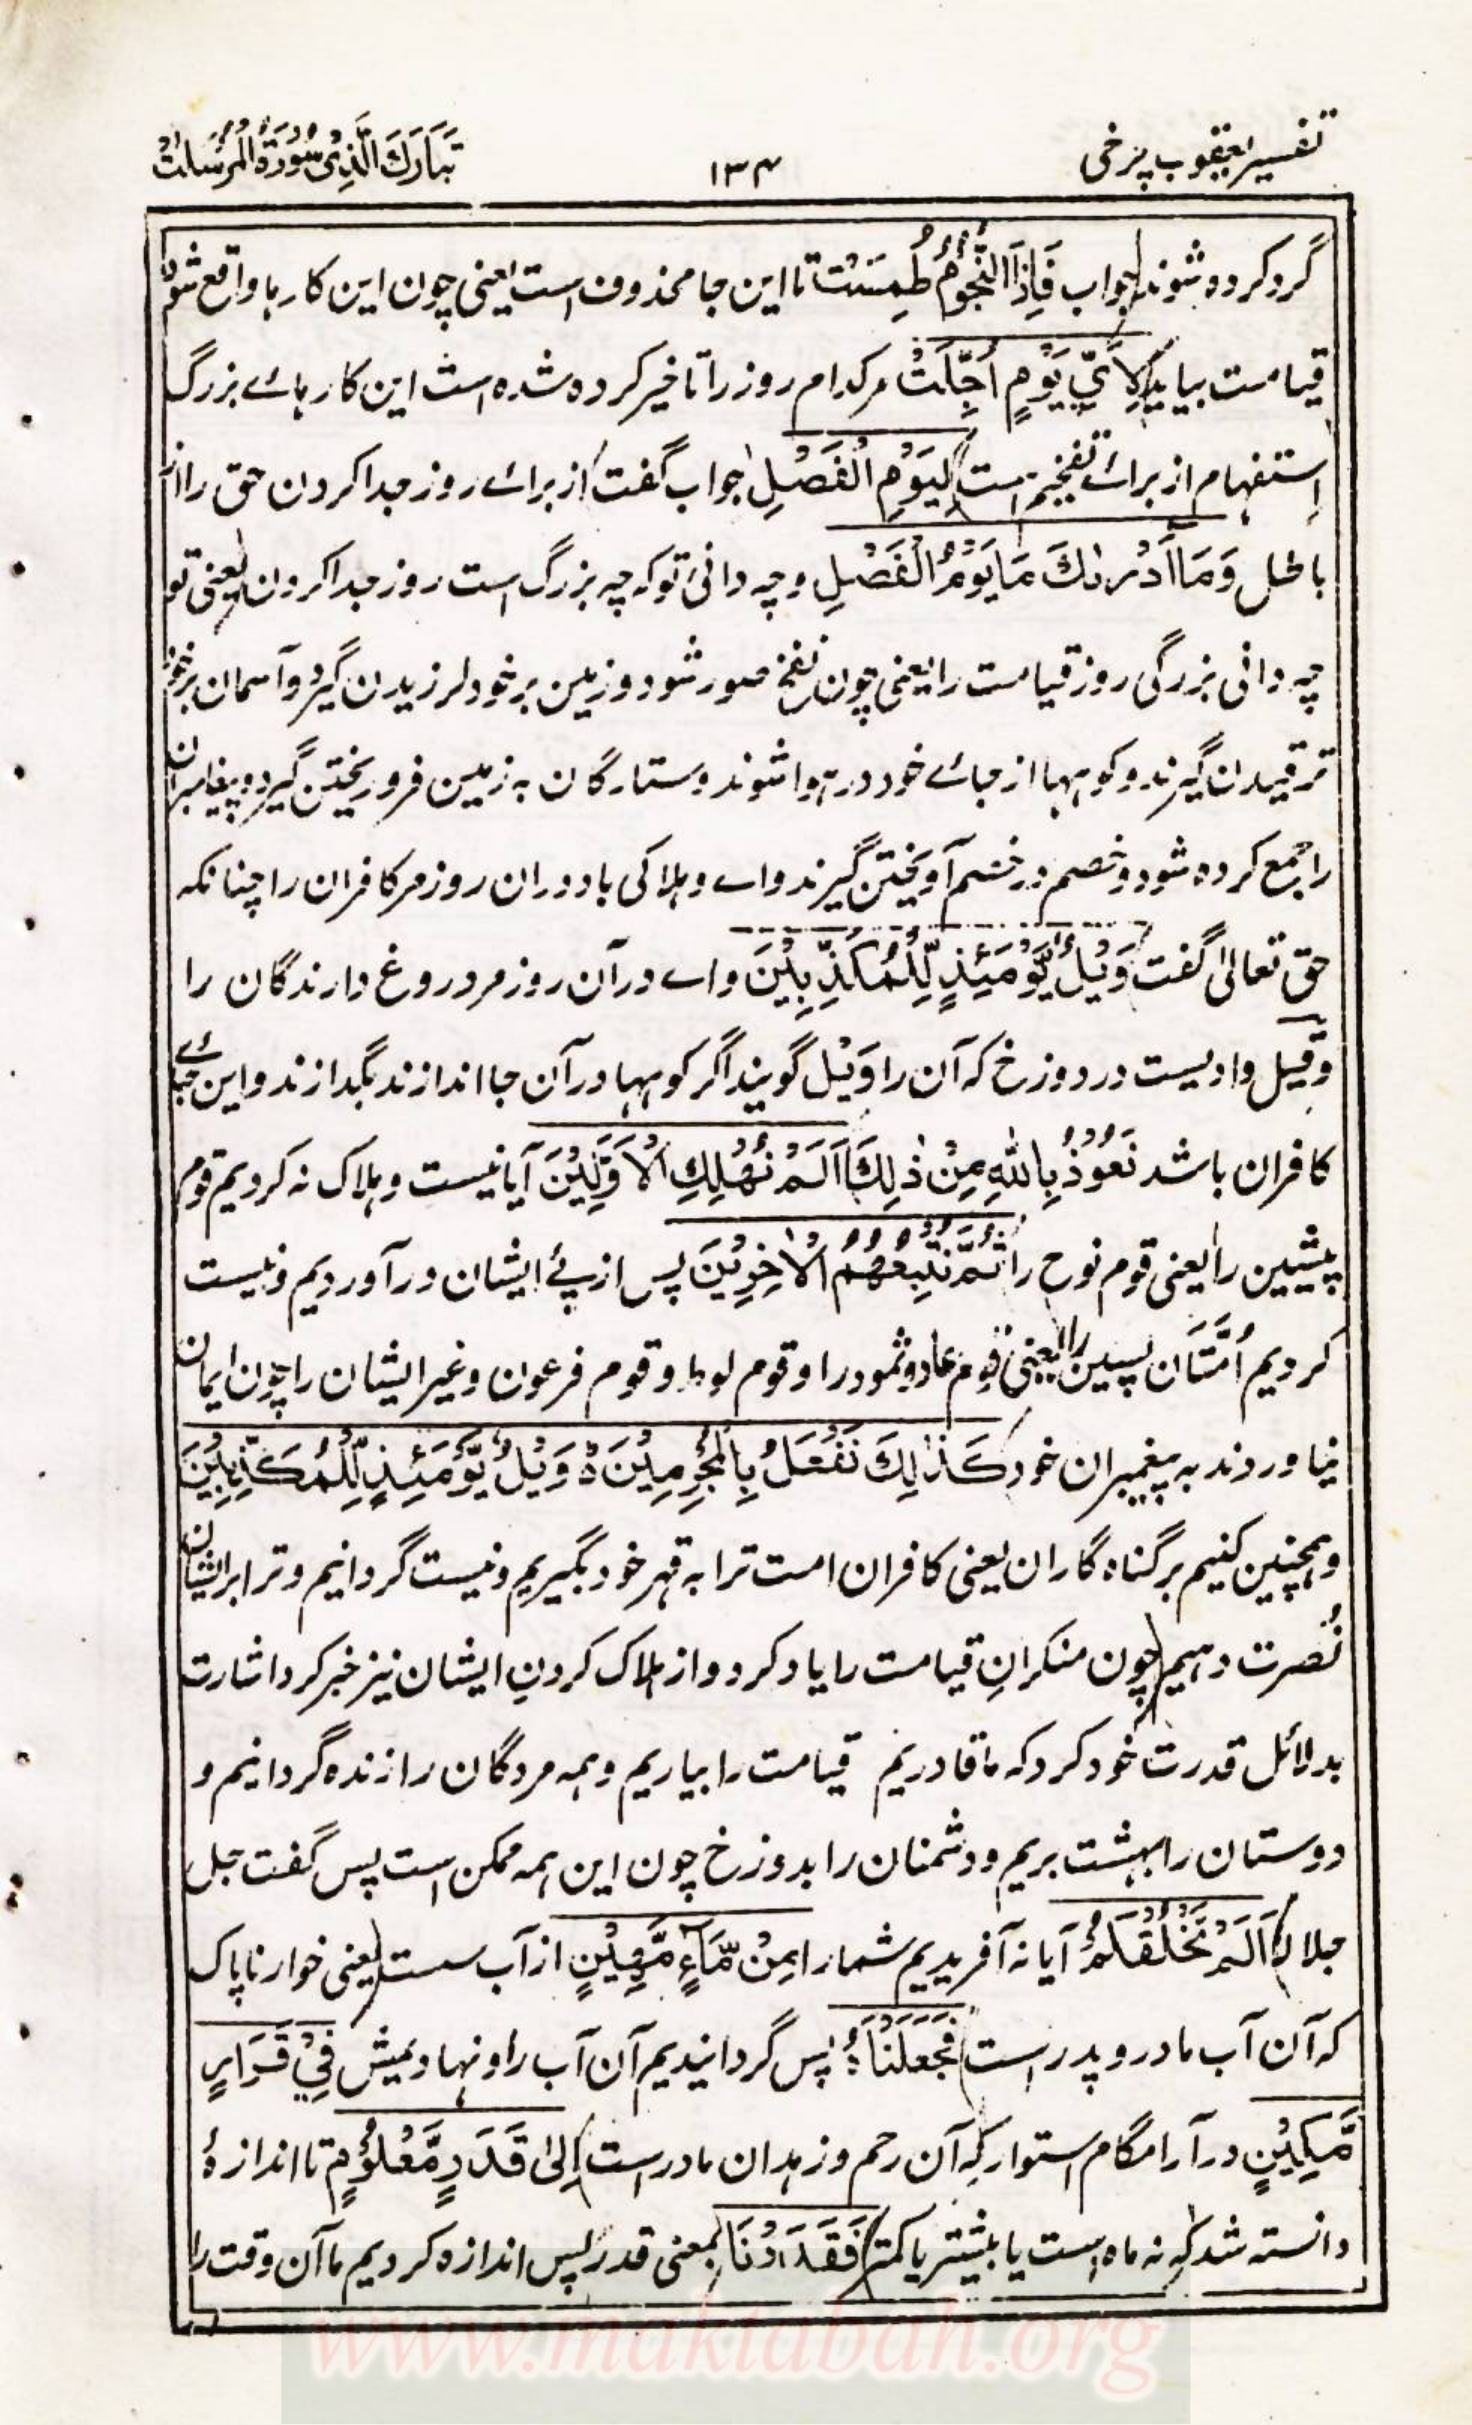 تفسیر یعقوب چرخی
۱۳۴
تَبَارَكَ الَّذِیْ سُوْرَةُ الْمُرْسَلٰتِ
گرد کرده شوند جواب فَاِذَا النُّجُوْمُ طُمِسَتْ تا این جا محذوف است یعنی چون این کارها واقع شود
قیامت بیاید لِاَیِّ یَوْمٍ اُجِّلَتْ مر کدام روز را تاخیر کرده شده است این کارهائے بزرگ
استفهام از برائے تفخیم است لِیَوْمِ الْفَصْلِ جواب گفت از برائے روز جدا کردن حق را از
باطل وَمَا اَدْرٰىكَ مَا یَوْمُ الْفَصْلِ و چه دانی تو که چه بزرگ است روز جدا کردن یعنی تو
چه دانی بزرگی روز قیامت را یعنی چون نفخ صور شود و زمین بر خود لرزیدن گیرد و آسمان بر خود
ترقیدن گیرند و کوهها از جائے خود در هوا شوند و ستارگان به زمین فرو ریختن گیرد و پیغامبران
را جمع کرده شود و خصم در خصم آویختن گیرند واے و هلاکی باد دران روز مر کافران را چنانکه
حق تعالیٰ گفت وَیْلٌ یَّوْمَئِذٍ لِّلْمُكَذِّبِیْنَ واے در آن روز مر دروغ دارندگان را
وقیل وادیست در دوزخ که آن را وَیْل گویند اگر کوهها در آن جا اندازند بگدازند و این جائے
کافران باشد نَعُوْذُ بِاللّٰهِ مِنْ ذٰلِكَ اَلَمْ نُهْلِكِ الْاَوَّلِیْنَ آیا نیست و هلاک نه کردیم قوم
پیشین را یعنی قوم نوح را ثُمَّ نُتْبِعُهُمُ الْاٰخِرِیْنَ پس از پئے ایشان در آوردیم و نیست
کردیم اُمَّتَان پسین را یعنی قوم عاد و ثمود را و قوم لوط و قوم فرعون و غیر ایشان را چون ایمان
نیاوردند به پیغمبران خود كَذٰلِكَ نَفْعَلُ بِالْمُجْرِمِیْنَ ۃ وَیْلٌ یَّوْمَئِذٍ لِّلْمُكَذِّبِیْنَ
و همچنین کنیم بر گناه گاران یعنی کافران امت ترا به قهر خود بگیریم و نیست گردانیم و ترا بر ایشان
نُصرت دهیم چون منکرانِ قیامت را یاد کرد و از هلاک کردنِ ایشان نیز خبر کرد اشارت
بدلائل قدرت خود کرد که ما قادریم قیامت را بیاریم و همه مردگان را زنده گردانیم و
دوستان را بهشت بریم و دشمنان را بدوزخ چون این همه ممکن است پس گفت جل
جلاله اَلَمْ نَخْلُقْكُمْ آیا نه آفریدیم شما را مِنْ مَّآءٍ مَّهِیْنٍ از آب سست یعنی خوار ناپاک
که آن آب مادر و پدر است فَجَعَلْنٰهُ پس گردانیدیم آن آب را و نهادیمش فِیْ قَرَارٍ
مَّكِیْنٍ در آرامگاه استوار که آن رحم و زهدان مادر است اِلیٰ قَدَرٍ مَّعْلُوْمٍ تا اندازۂ
دانسته شد که نه ماه است یا بیشتر یا کمتر فَقَدَرْنَا بمعنی قدر پس اندازه کردیم ما آن وقت را
www.maktabah.org